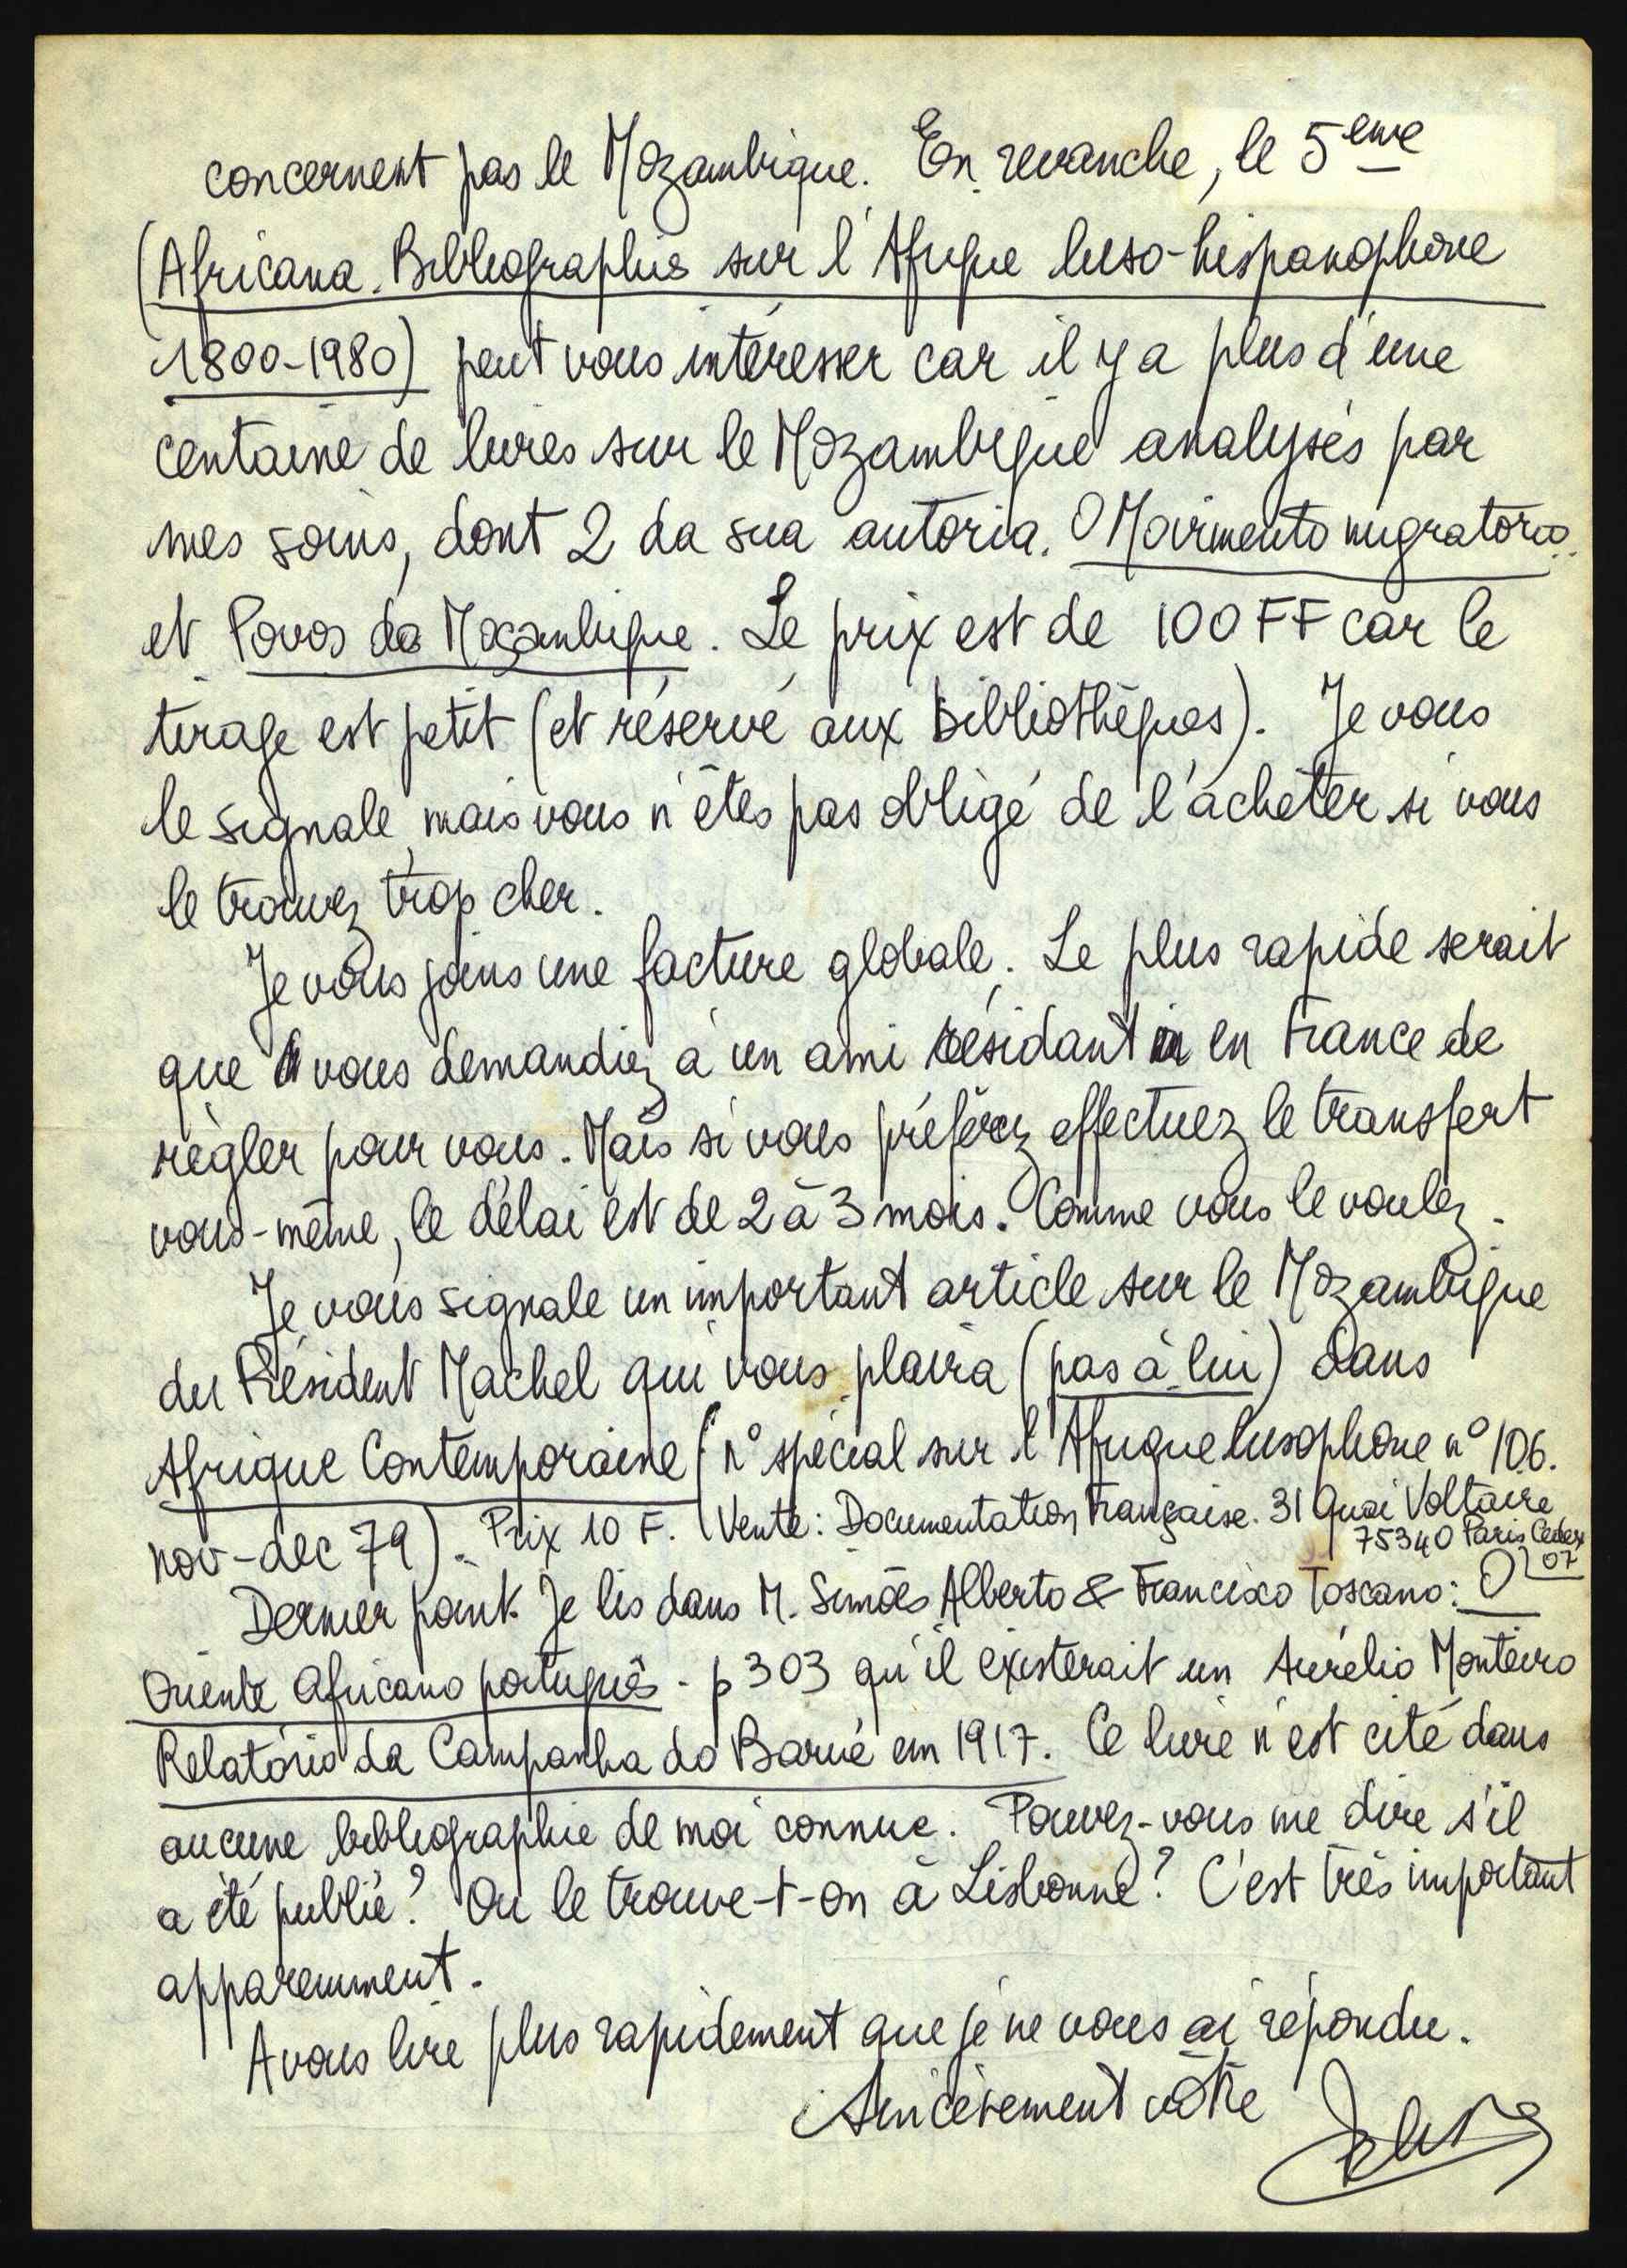 concernent pas le Mozambique. En revanche, le 5ème
(Africana. Bibliographies sur l'Afrique luso-hispanophone
1800-1980) peut vous intéresser car il y a plus d'une
centaine de livres sur le Mozambique analysés par
mes soins, dont 2 da sua autoria. O Movimento migratorio
et Povos de Moçambique. Le prix est de 100 FF car le
tirage est petit (et réservé aux bibliothèques). Je vous
le signale, mais vous n'êtes pas obligé de l'acheter si vous
le trouvez trop cher.
Je vous joins une facture globale. Le plus rapide serait
que vous demandiez à un ami résidant en France de
régler pour vous. Mais si vous préférez effectuez le transfert
vous-même, le délai est de 2 à 3 mois. Comme vous le voulez.
Je vous signale un important article sur le Mozambique
du Président Machel qui vous plaira (pas à lui) dans
Afrique Contemporaine (n° spécial sur l'Afrique lusophone n° 106.
nov-dec 79). Prix 10 F. (Vente: Documentation Française. 31 Quai Voltaire
75340 Paris Cedex
07
Dernier point. Je lis dans M. Simões Alberto & Francisco Toscano: O
Oriente Africano português - p 303 qu'il existerait un Aurélio Monteiro
Relatório da Campanha do Barué em 1917. Ce livre n'est cité dans
aucune bibliographie de moi connue. Pouvez-vous me dire s'il
a été publié? Ou le trouve-t-on à Lisbonne? C'est très important
apparemment.
A vous lire plus rapidement que je ne vous ai répondu.
Sincèrement vôtre